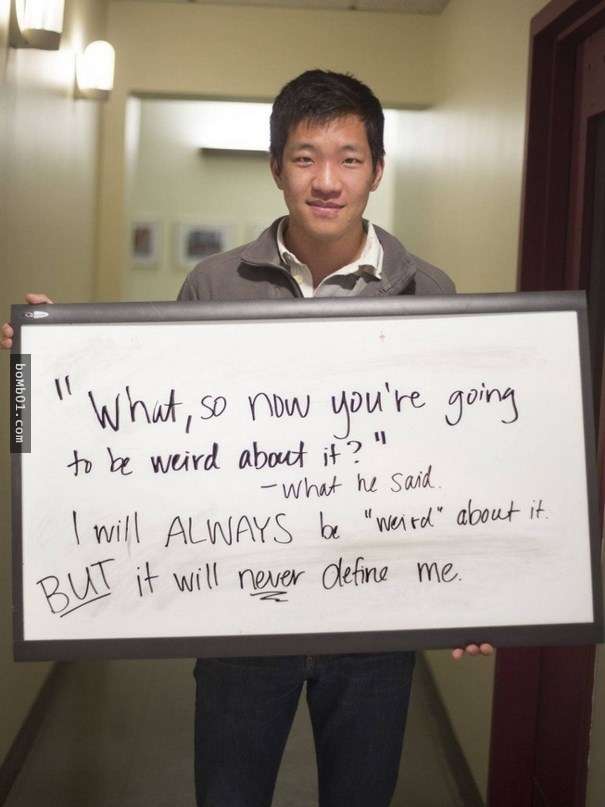 "What, so now you're going
to be weird about it?"
-What he said.
I will ALWAYS be "weird" about it.
BUT it will never define me.
bomb01.com